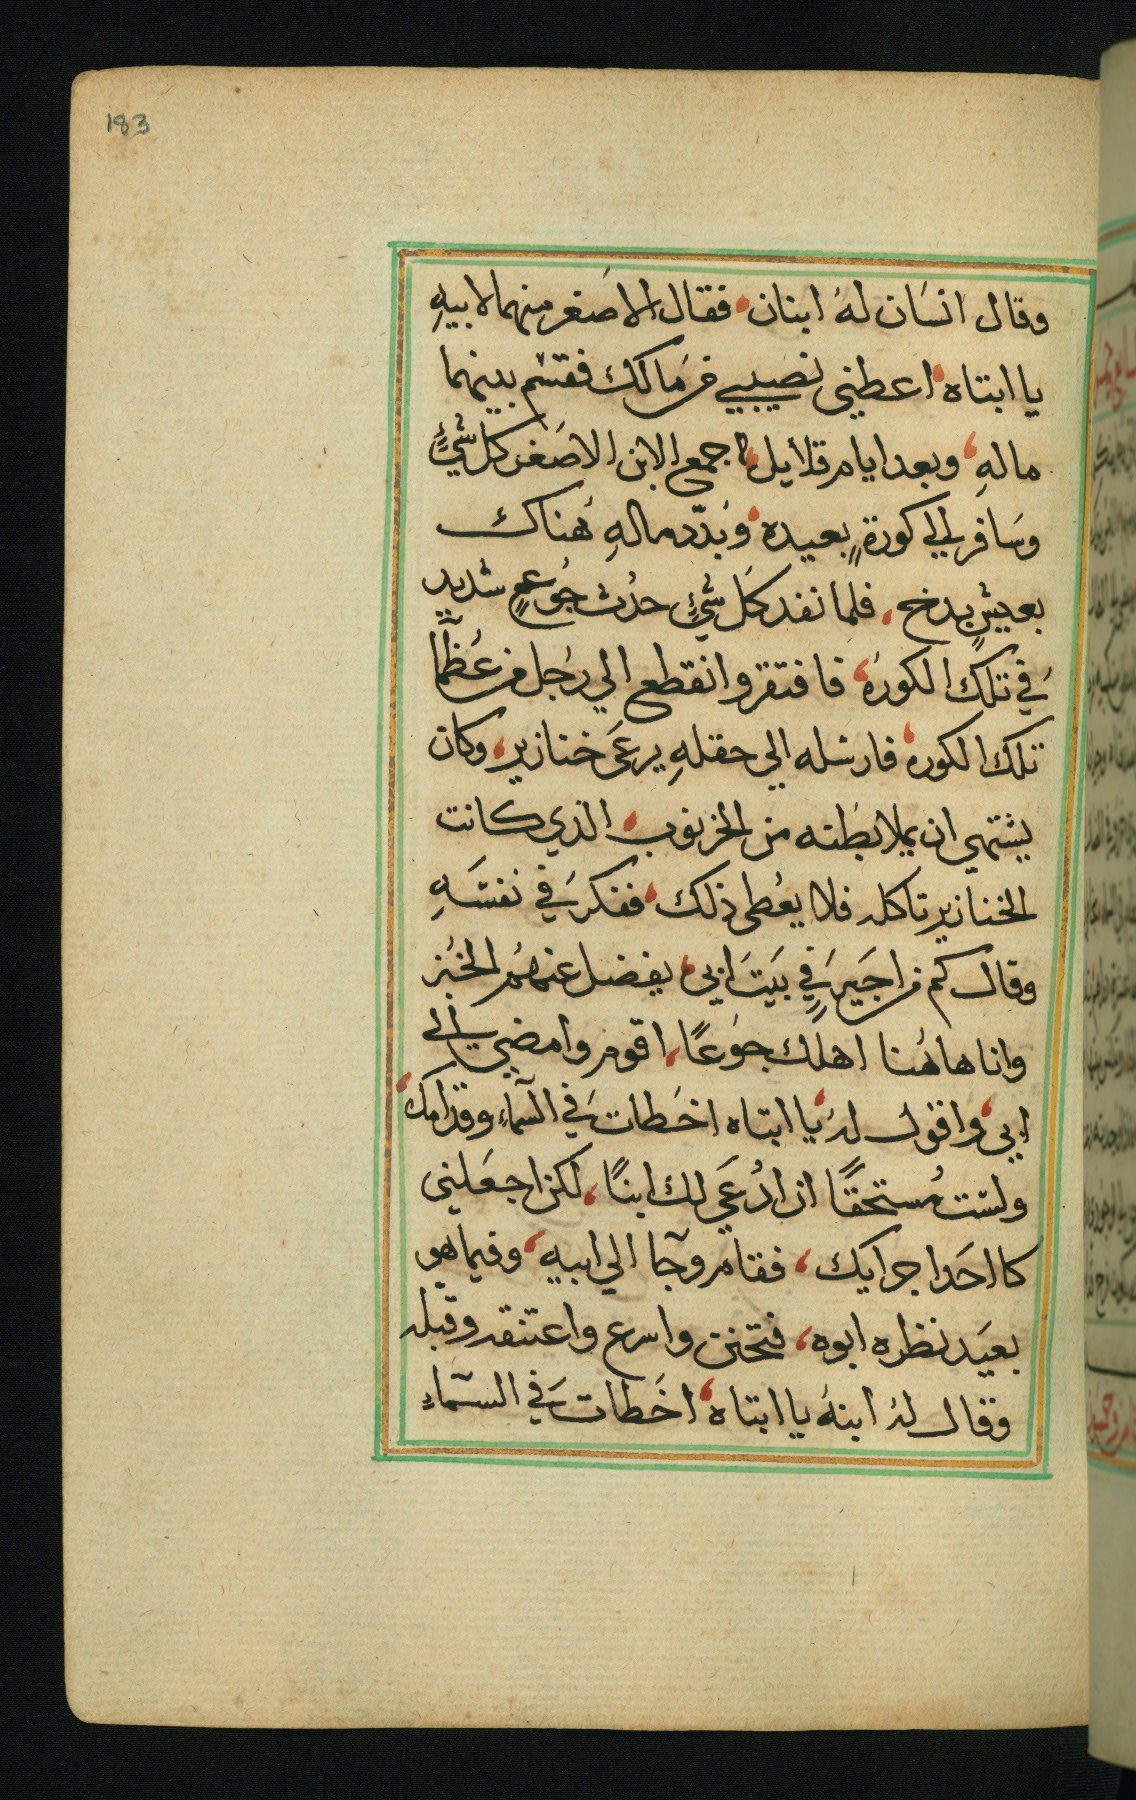 183
وقال انسَان لهُ ابنان، فقال الاصَغر منهما لابيهِ
يا ابتاه، اعطيني نصيبي من مَالك فقسَم بينهما
مالهِ، وبعد ايام قلايل، جمع الابن الاصَغر كل شيءٍ
وسَافر الي كورةٍ بعيده، وبَدّد مالهِ هُناك
بعيشٍ بدخ، فلما نفد كل شيءٍ حدُث جُوعٍ شديدٍ
في تلك الكورَه، فافتقر وانقطع الي رَجل من عُظمآ
تلك الكوره، فارسَله الي حقلهِ يرعَى خنازير، وكان
يشتهي ان يملا بطنه من الخرنوب، الذي كانت
الخنازير تاكله فلا يعُطى ذلك، ففكرَ في نفسَهِ
وقال كم من اجَيرٍ في بَيتَ ابي، يفضل عنهُم الخبُز
وانا هاهُنا اهلك جوعًا، اقوم وامضي الي
ابي، واقول لهُ، يا ابتاه اخَطات في السَماءِ وقدامك،
ولسَت مُستحقاً ان ادُعَي لك ابنًا، لكن اجعَلني
كااحَد اجرايك، فقام وجآ الي ابيه، وفيما هو
بعَيد نظره ابوه، فتحنن واسرع واعتنقه وقبّله
وقال لهُ ابنهُ يا ابتاه، اخَطات في السَمآءِ